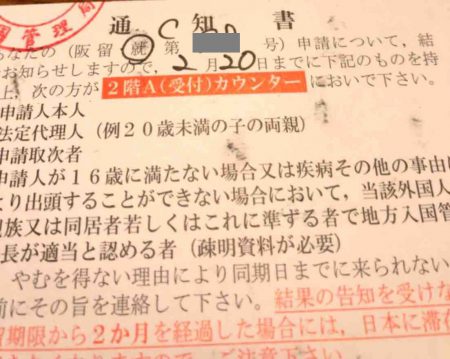 国管理局
通知書
なたの（阪留就C第 号）申請について，結
お知らせしますので，2月20日までに下記のものを持
上，次の方が2階A(受付)カウンターにおいで下さい。
申請人本人
法定代理人（例２０歳未満の子の両親）
申請取次者
申請人が１６歳に満たない場合又は疾病その他の事由に
より出頭することができない場合において，当該外国人
親族又は同居者若しくはこれに準ずる者で地方入国管
長が適当と認める者（疎明資料が必要）
やむを得ない理由により同期日までに来られない
前にその旨を連絡して下さい。結果の告知を受けな
留期限から２か月を経過した場合には，日本に滞在
ご注意